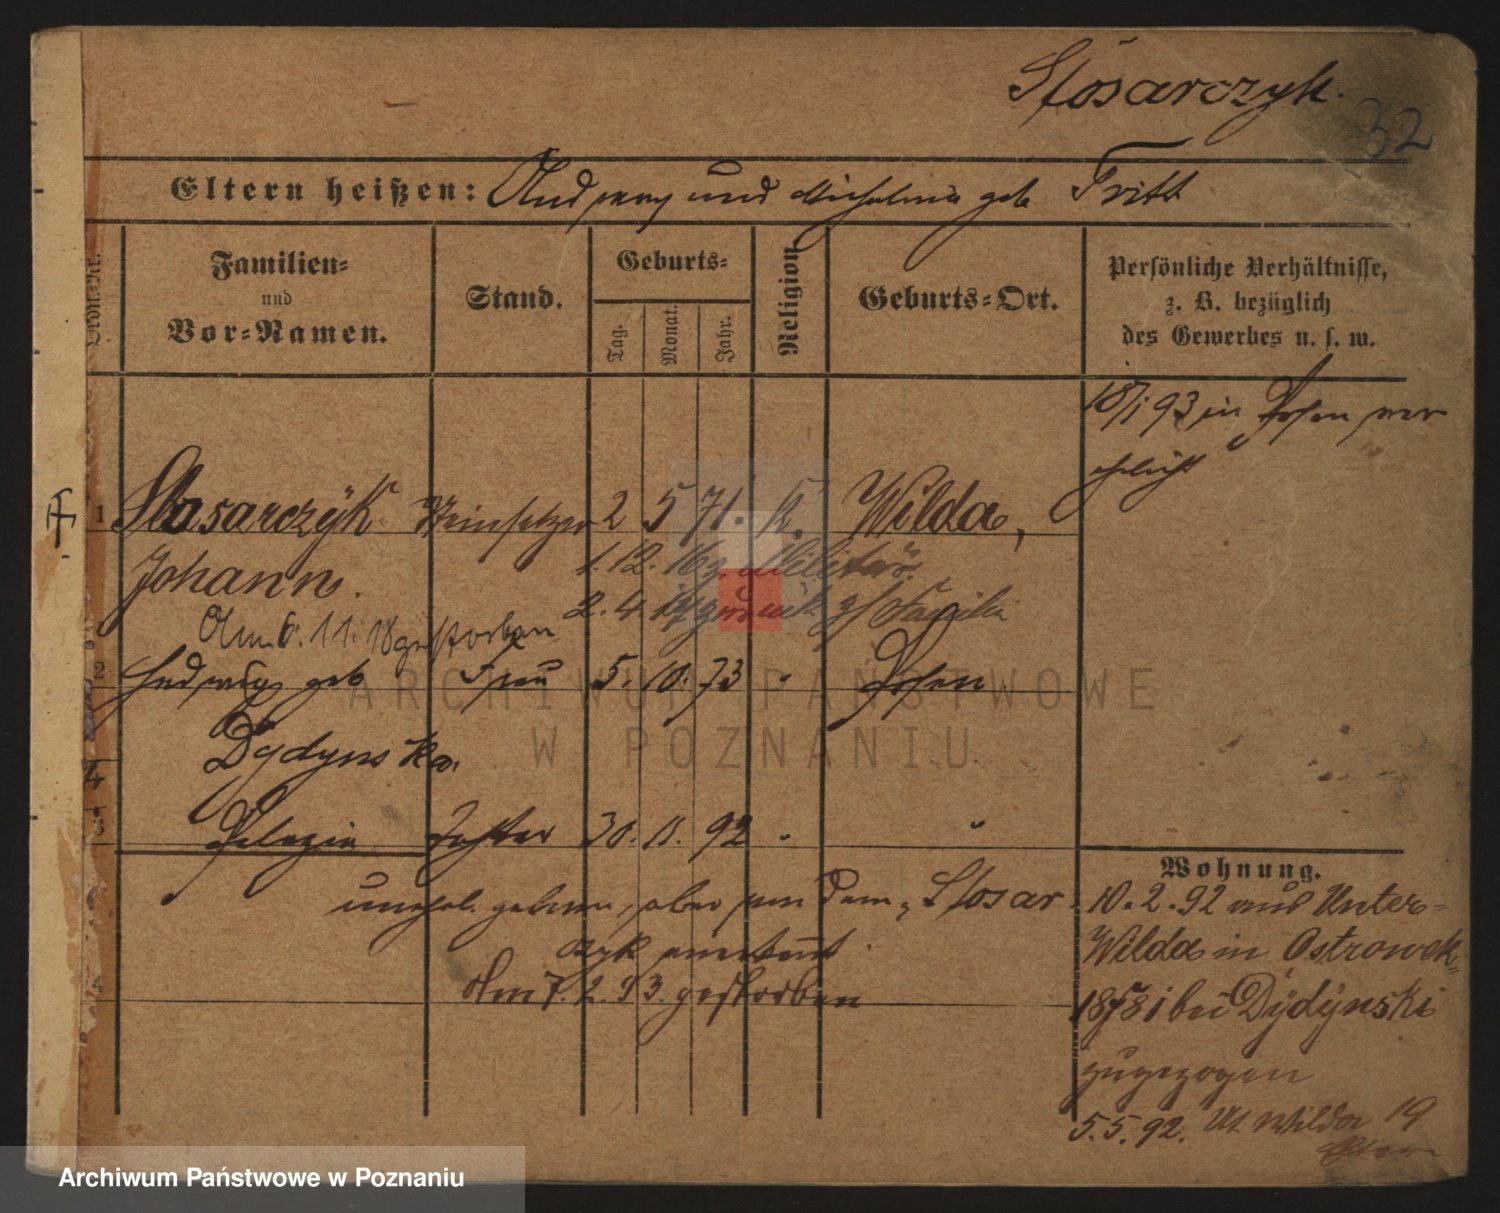 Slosarczyk.
32
Eltern heißen: Andreas und Michalina geb Tritt
Ordn.-Nr.
Familien-
und
Vor-Namen.
Stand.
Geburts-
Tag.
Monat.
Jahr.
Religion
Geburts-Ort.
Persönliche Verhältnisse,
z. B. bezüglich
des Gewerbes u. s. w.
18/1 93 in Posen ver
ehelicht
1 Slosarczÿk Steinsetzer 2 5 71. K. Wilda,
Johann.
1. 12. 16 z. Militär
2. 4. 17 zurück z/ Familie
Am 6. 11. 18 gestorben
2 Hedwig geb Frau 5. 10. 73 " Posen
Dydynska.
4
3 Pelagia Tochter 30. 11. 92 " "
unehel. geboren, aber von dem Slosar
czyk anerkannt.
4 Am 7. 2. 93. gestorben
Wohnung.
10. 2. 92 aus Unter-
Wilda in Ostrowek
bei Dÿdÿnski
zugezogen
5. 5. 92. Ut Wilda 19
ARCHIWUM PAŃSTWOWE
W POZNANIU
Archiwum Państwowe w Poznaniu